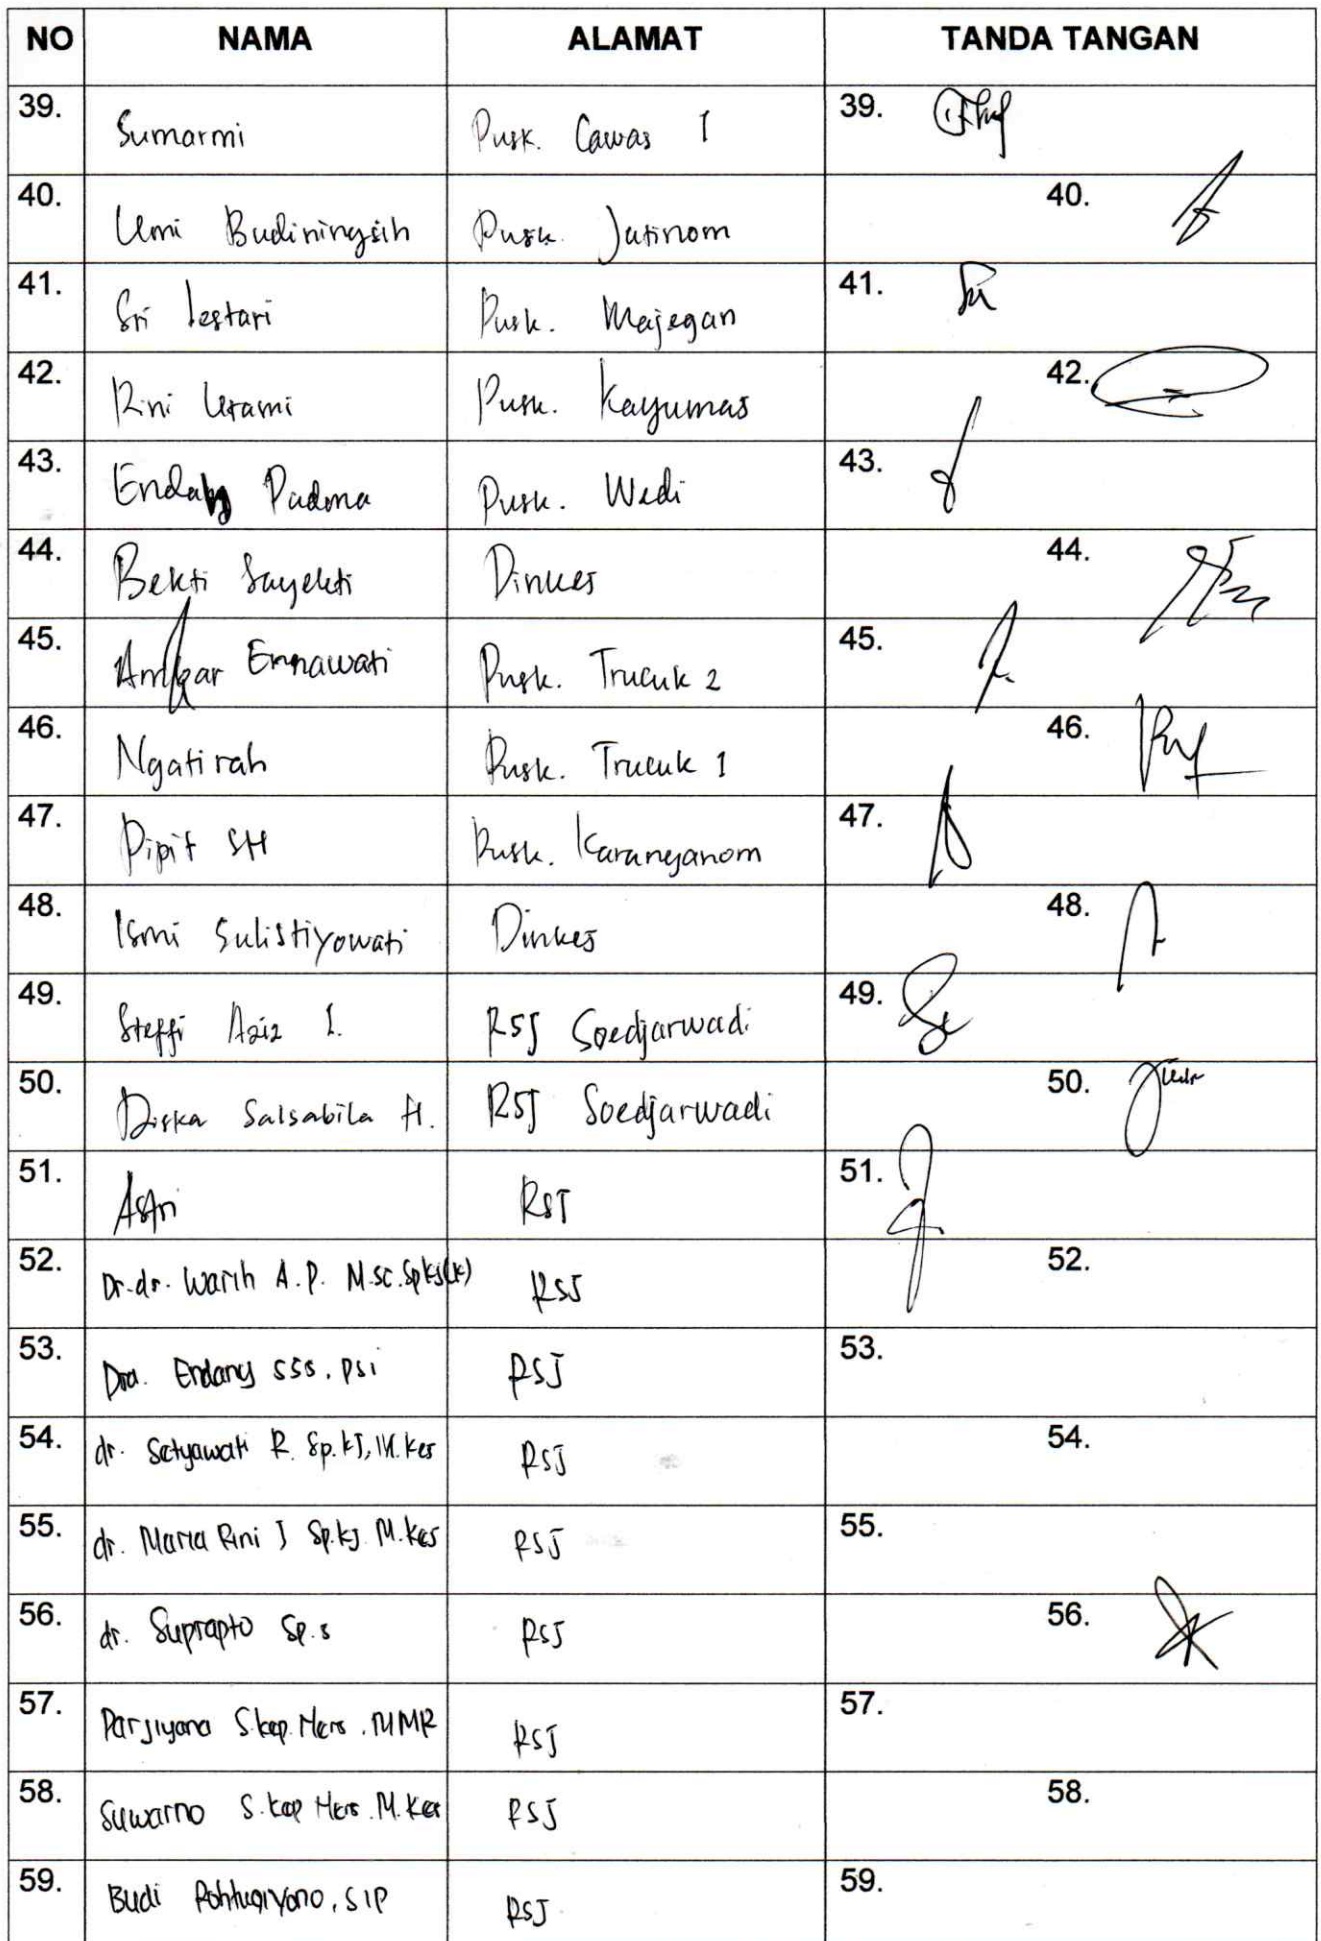 NO NAMA ALAMAT TANDA TANGAN
39. Sumarmi Pusk. Cawas I 39.
40. Umi Budiningsih Pusk. Jatinom 40.
41. Sri Lestari Pusk. Majegan 41.
42. Rini Utami Pusk. Kayumas 42.
43. Endang Padma Pusk. Wedi 43.
44. Bekti Sayekti Dinkes 44.
45. Ernawati Pusk. Trucuk 2 45.
46. Ngatirah Pusk. Trucuk 1 46.
47. Pipit SH Pusk. Karanganom 47.
48. Ismi Sulistiyowati Dinkes 48.
49. Steffi Aziz I. RSJ Soedjarwadi 49.
50. Diska Salsabila H. RSJ Soedjarwadi 50.
51. Astri RSJ 51.
52. Dr.dr. Warih A.P. M.sc.Spkj(k) RSJ 52.
53. Dra. Endang SSS. Psi RSJ 53.
54. dr. Setyawati R. Sp.KJ, M.Kes RSJ 54.
55. dr. Maria Rini J Sp.kj. M.Kes RSJ 55.
56. dr. Suprapto Sp.s RSJ 56.
57. Parjiyono S.kep.Ners. MMR RSJ 57.
58. Suwarno S.kep Ners. M.Kes RSJ 58.
59. Budi SIP RSJ 59.